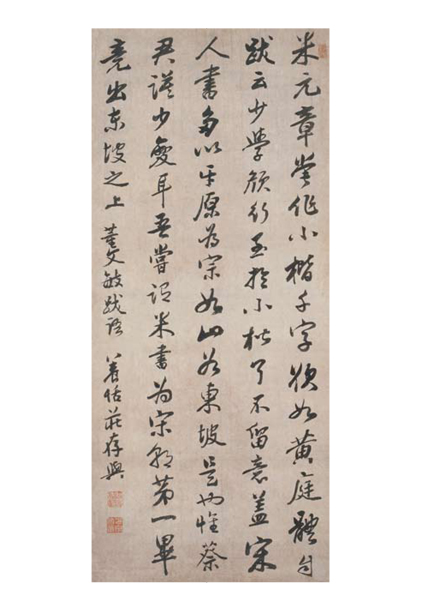 米元章嘗作小楷千字欲如黃庭體自
跋云少學顏行至於小楷了不留意蓋宋
人書多以平原為宗如山谷東坡是也惟蔡
君謨少變耳吾嘗評米書為宋朝第一畢
竟出東坡之上 董文敏跋語 養恬莊存與